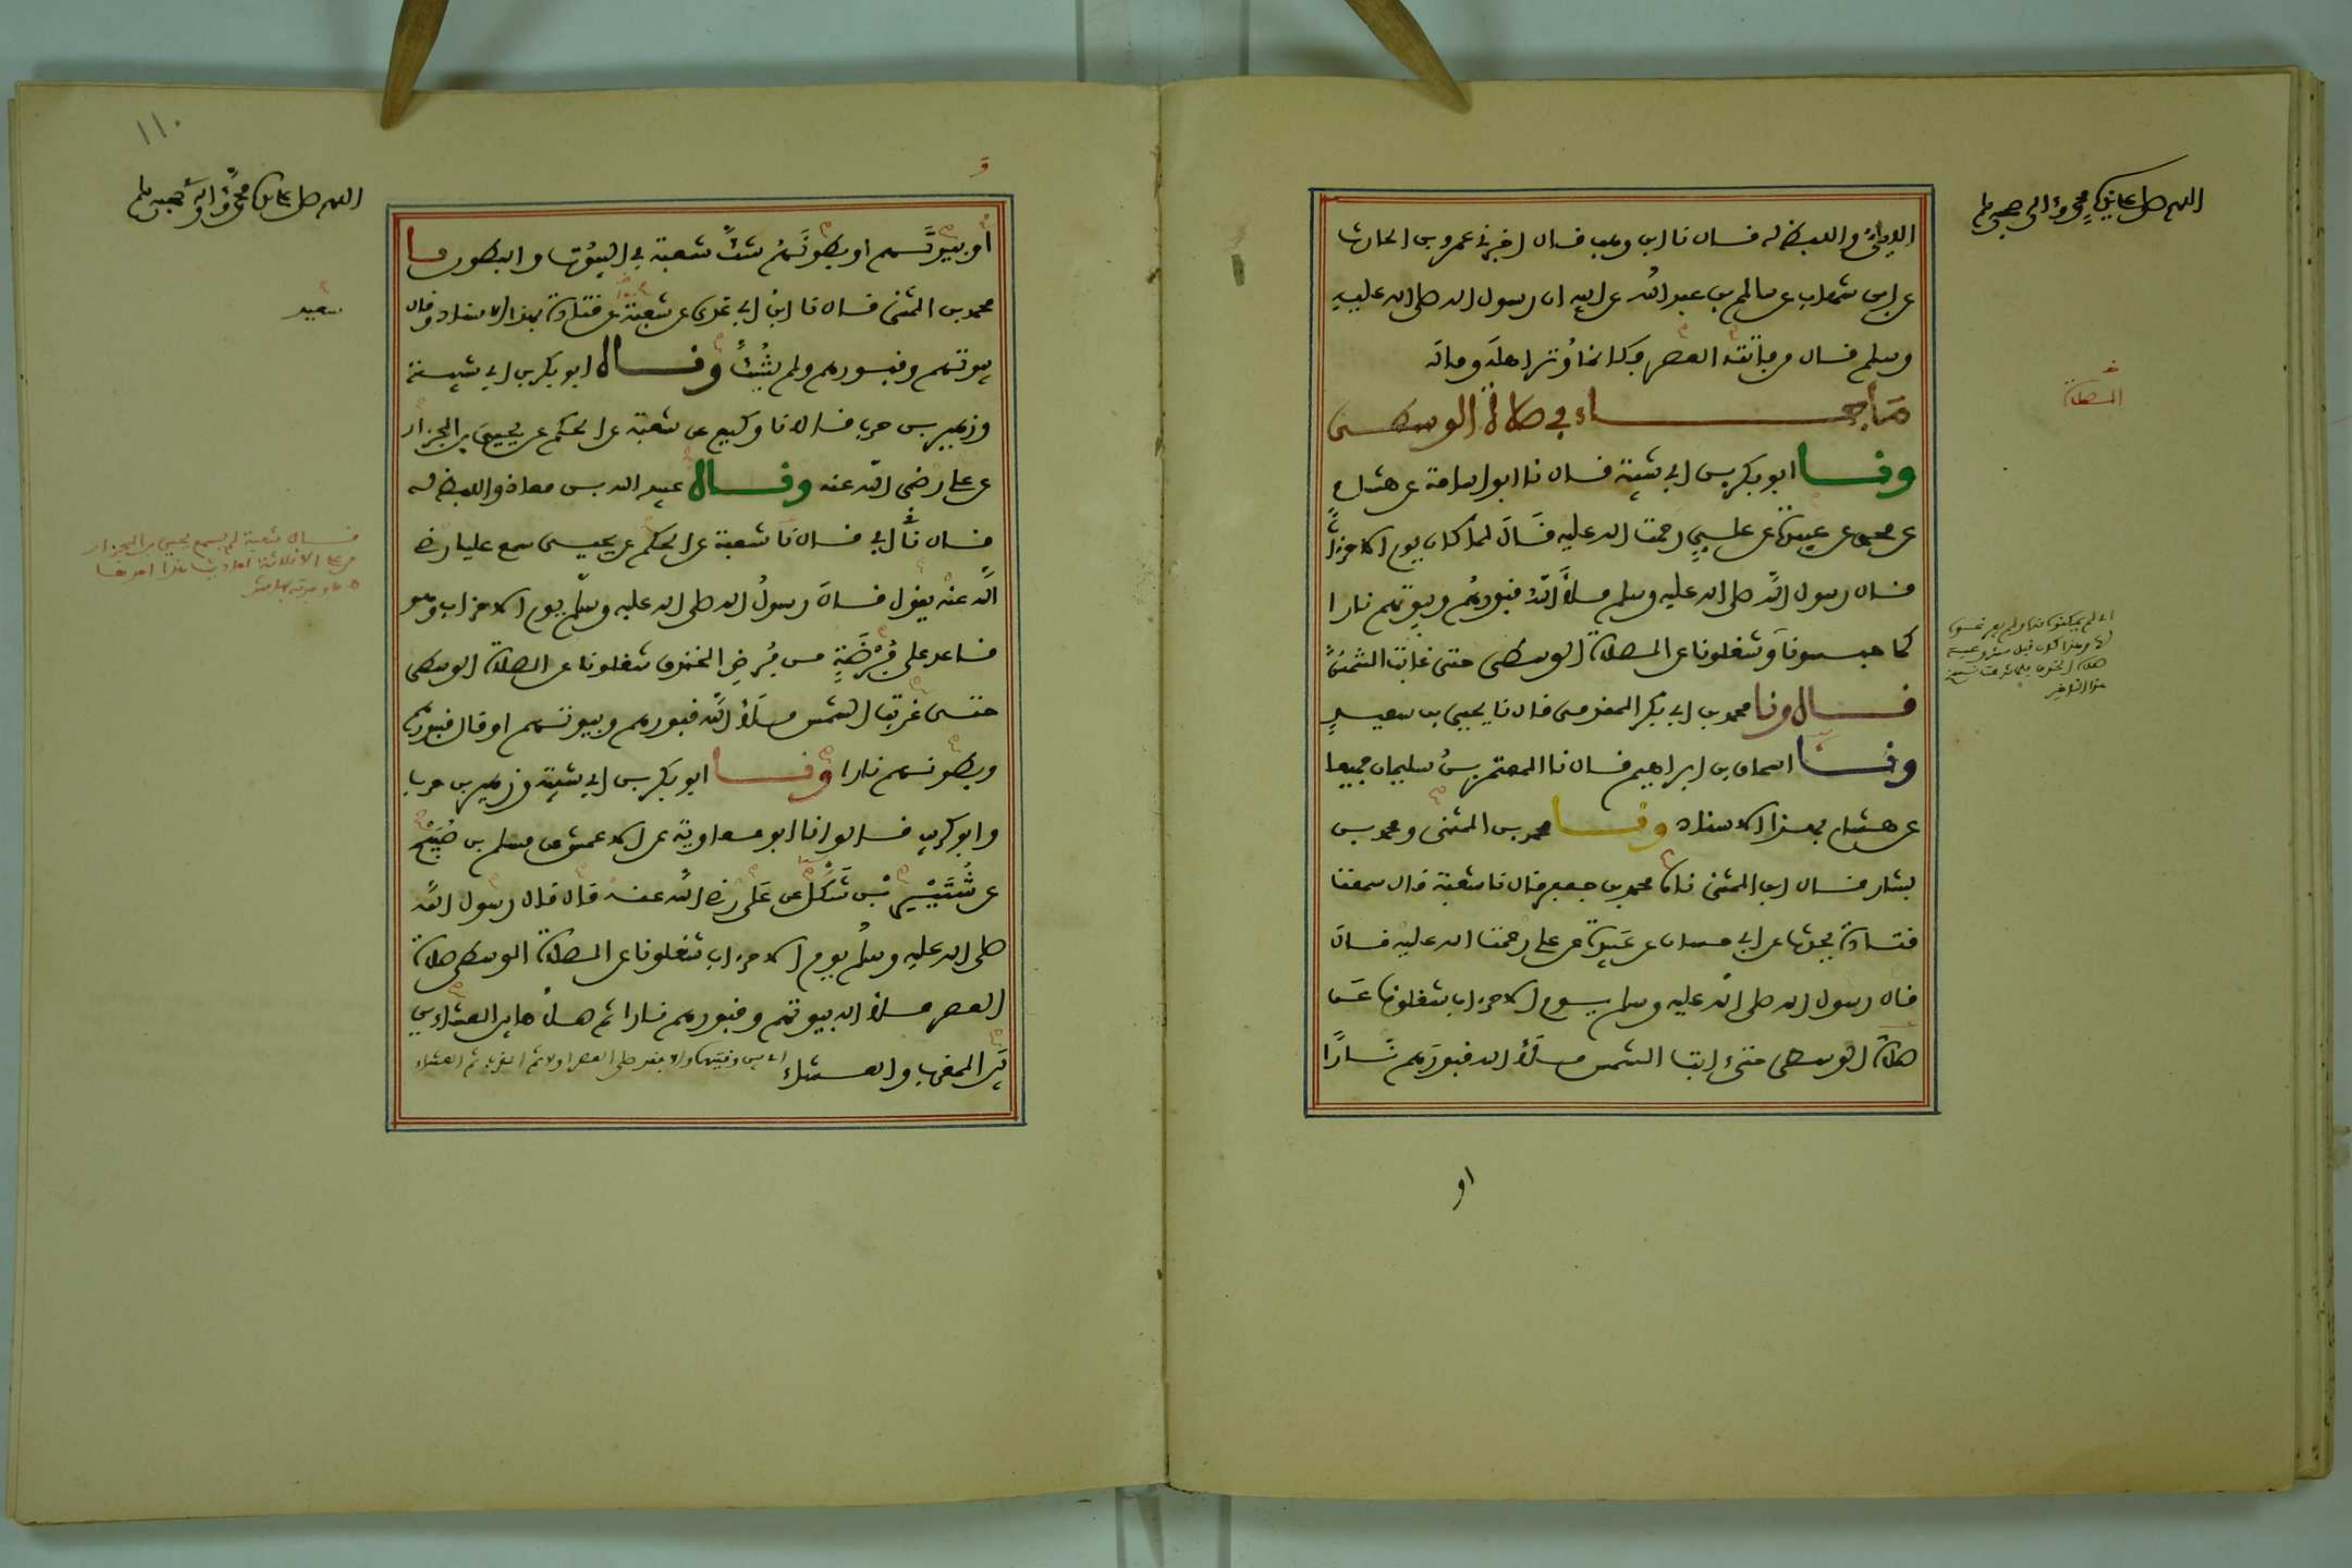 اللهم صل على سيدنا محمد وآله وصحبه وسلم
الايلي واللفظ له قال نا ابن وهب قال اخبرني عمرو بن الحارث
عن ابن شهاب عن سالم بن عبد الله عن ابيه ان رسول الله صلى الله عليه
وسلم قال من فاتته العصر فكانما وتر اهله وماله
ما جاء في صلاة الوسطى
الصلاة
ونا ابو بكر بن ابي شيبة قال نا ابو اسامة عن هشام
عن محمد عن عبيدة عن علي رحمت الله عليه قال لما كان يوم الاحزاب
قال رسول الله صلى الله عليه وسلم ملأ الله قبورهم وبيوتهم نارا
كما حبسونا وشغلونا عن الصلاة الوسطى حتى غابت الشمس
قال ونا محمد بن ابي بكر المقدمي قال نا يحيى بن سعيد
ونا اسحاق بن ابراهيم قال نا المعتمر بن سليمان جميعا
عن هشام بهذا الاسناد ونا محمد بن المثنى ومحمد بن
بشار قال ابن المثنى نا محمد بن جعفر قال نا شعبة قال سمعت
قتادة يحدث عن ابي حسان عن عبيدة عن علي رحمت الله عليه قال
قال رسول الله صلى الله عليه وسلم يوم الاحزاب شغلونا عن
صلاة الوسطى حتى ءابت الشمس ملأ الله قبورهم نارا
او
١١٠
اللهم صل على سيدنا محمد وآله وصحبه وسلم
او بيوتهم او بطونهم شك شعبة في البيوت والبطون نا
محمد بن المثنى قال نا ابن ابي عدي عن شعبة عن قتادة بهذا الاسناد وقال
سعيد
بيوتهم وقبورهم ولم يشك وقال ابو بكر بن ابي شيبة
وزهير بن حرب قالا نا وكيع عن شعبة عن الحكم عن يحيى بن الجزار
عن علي رضي الله عنه وقال عبيد الله بن معاذ واللفظ له
قال نا ابي قال نا شعبة عن الحكم عن يحيى سمع عليا رضي
الله عنه يقول قال رسول الله صلى الله عليه وسلم يوم الاحزاب وهو
قاعد على فرضة من فرض الخندق شغلونا عن الصلاة الوسطى
حتى غربت الشمس ملأ الله قبورهم وبيوتهم او قال قبورهم
وبطونهم نارا ونا ابو بكر بن ابي شيبة وزهير بن حرب
وابو كريب قالوا نا ابو معاوية عن الاعمش عن مسلم بن صبيح
عن شتير بن شكل عن علي رضي الله عنه قال قال رسول الله
صلى الله عليه وسلم يوم الاحزاب شغلونا عن الصلاة الوسطى صلاة
العصر ملأ الله بيوتهم وقبورهم نارا ثم صلاها بين العشاءين
بين المغرب والعشاء
قال شعبة لم يسمع يحيى بن الجزار
من علي الا ثلاثة احاديث هذا احدها